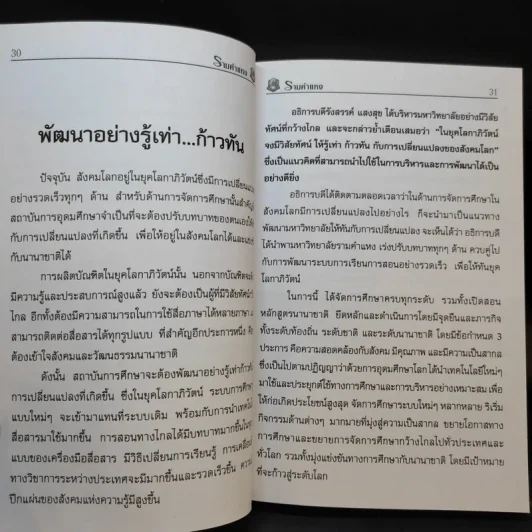 30
รามคำแหง
พัฒนาอย่างรู้เท่า...ก้าวทัน
ปัจจุบัน สังคมโลกอยู่ในยุคโลกาภิวัตน์ซึ่งมีการเปลี่ยนแปลง
อย่างรวดเร็วทุกๆ ด้าน สำหรับด้านการจัดการศึกษานั้นสำคัญ
สถาบันการอุดมศึกษาจำเป็นที่จะต้องปรับบทบาทของตนเองให้
กับการเปลี่ยนแปลงที่เกิดขึ้น เพื่อให้อยู่ในสังคมโลกได้และแข่ง
กับนานาชาติได้
การผลิตบัณฑิตในยุคโลกาภิวัตน์นั้น นอกจากบัณฑิตจะ
มีความรู้และประสบการณ์สูงแล้ว ยังจะต้องเป็นผู้ที่มีวิสัยทัศน์
ไกล อีกทั้งต้องมีความสามารถในการใช้สื่อภาษาได้หลายภาษา
สามารถติดต่อสื่อสารได้ทุกรูปแบบ ที่สำคัญอีกประการหนึ่ง
ต้องเข้าใจสังคมและวัฒนธรรมนานาชาติ
ดังนั้น สถาบันการศึกษาจะต้องพัฒนาอย่างรู้เท่าก้าวทัน
การเปลี่ยนแปลงที่เกิดขึ้น ซึ่งในยุคโลกาภิวัตน์ ระบบการศึกษา
แบบใหม่ๆ จะเข้ามาแทนที่ระบบเดิม พร้อมกับการนำเทคโน
สื่อสารมาใช้มากขึ้น การสอนทางไกลได้มีบทบาทมากขึ้นใน
แบบของเครื่องมือสื่อสาร มีวิธีเปลี่ยนการเรียนรู้ การเคลื่อน
ทางวิชาการระหว่างประเทศจะมีมากขึ้นและรวดเร็วขึ้น ความ
ปึกแผ่นของสังคมแห่งความรู้มีสูงขึ้น
รามคำแหง
31
อธิการบดีรังสรรค์ แสงสุข ได้บริหารมหาวิทยาลัยอย่างมีวิสัย
ทัศน์ที่กว้างไกล และจะกล่าวย้ำเตือนเสมอว่า "ในยุคโลกาภิวัตน์
จงมีวิสัยทัศน์ ให้รู้เท่า ก้าวทัน กับการเปลี่ยนแปลงของสังคมโลก"
ซึ่งเป็นแนวคิดที่สามารถนำไปใช้ในการบริหารและการพัฒนาได้เป็น
อย่างดียิ่ง
อธิการบดีได้ติดตามตลอดเวลาว่าในด้านการจัดการศึกษาใน
สังคมโลกมีการเปลี่ยนแปลงไปอย่างไร ก็จะนำมาเป็นแนวทาง
พัฒนามหาวิทยาลัยให้ทันกับการเปลี่ยนแปลง จะเห็นได้ว่า อธิการบดี
ได้นำพามหาวิทยาลัยรามคำแหง เร่งปรับบทบาททุกๆ ด้าน ควบคู่ไป
กับการพัฒนาระบบการเรียนการสอนอย่างรวดเร็ว เพื่อให้ทันยุค
โลกาภิวัตน์
ในการนี้ ได้จัดการศึกษาครบทุกระดับ รวมทั้งเปิดสอน
หลักสูตรนานาชาติ ยึดหลักและดำเนินการโดยมีจุดยืนและภารกิจ
ทั้งระดับท้องถิ่น ระดับชาติ และระดับนานาชาติ โดยมีข้อกำหนด 3
ประการ คือความสอดคล้องกับสังคม มีคุณภาพ และมีความเป็นสากล
ซึ่งเป็นไปตามปฏิญญาว่าด้วยการอุดมศึกษาโลก ได้นำเทคโนโลยีใหม่ๆ
มาใช้และประยุกต์ใช้ทางการศึกษาและการบริหารอย่างเหมาะสม เพื่อ
ให้ก่อเกิดประโยชน์สูงสุด จัดการศึกษาระบบใหม่ๆ หลากหลาย ริเริ่ม
กิจกรรมด้านต่างๆ มากมายที่มุ่งสู่ความเป็นสากล ขยายโอกาสทาง
การศึกษาและขยายการจัดการศึกษากว้างไกลไปทั่วประเทศและ
ทั่วโลก รวมทั้งมุ่งแข่งขันทางการศึกษากับนานาชาติ โดยมีเป้าหมาย
ที่จะก้าวสู่ระดับโลก